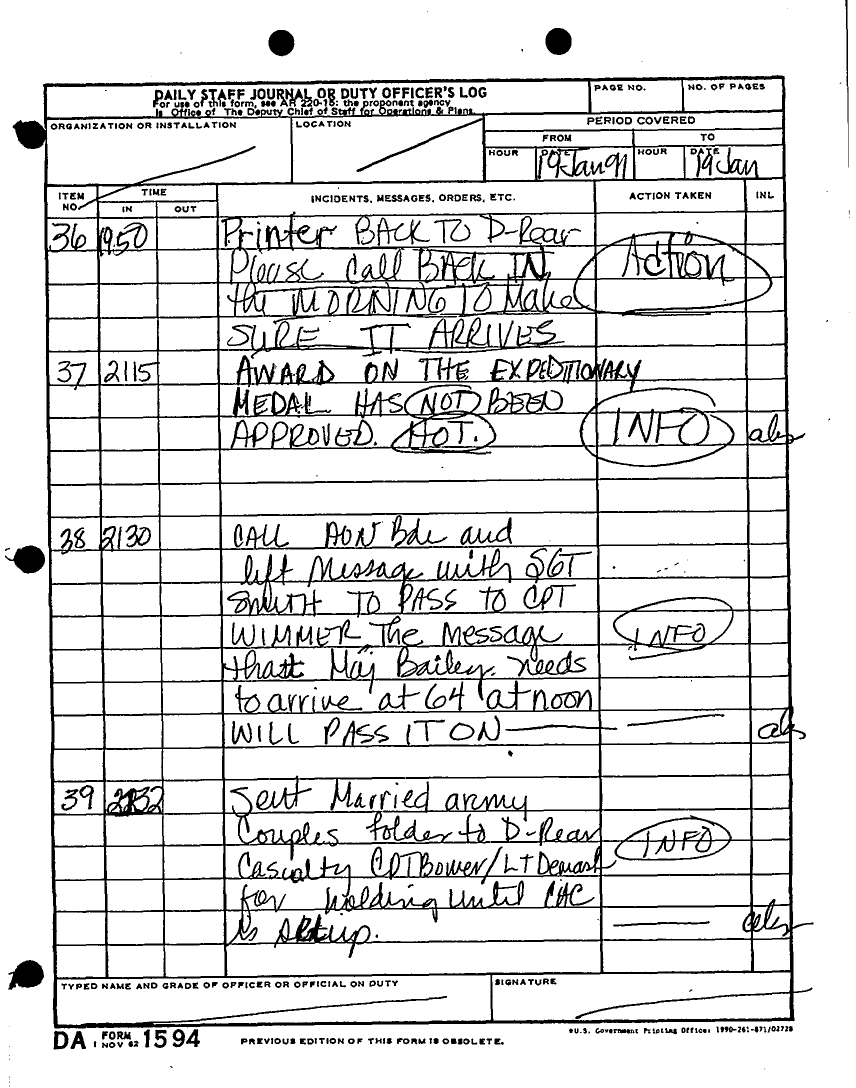 DAILY STAFF JOURNAL OR DUTY OFFICER'S LOG
For use of this form, see AR 220-15: the proponent agency
is Office of The Deputy Chief of Staff for Operations & Plans.
PAGE NO.
NO. OF PAGES
ORGANIZATION OR INSTALLATION
LOCATION
PERIOD COVERED
FROM
TO
HOUR
DATE
HOUR
DATE
19 Jan 91
19 Jan
ITEM NO.
TIME
IN
OUT
INCIDENTS, MESSAGES, ORDERS, ETC.
ACTION TAKEN
INL
36 1950 Printer BACK TO D-Rear
Please Call BACK IN Action
the MORNING TO Make
SURE IT ARRIVES
37 2115 AWARD ON THE EXPEDITIONARY
MEDAL HAS NOT BEEN
APPROVED. HOT. INFO
38 2130 CALL AVN Bde and
left Message with SGT
SMITH TO PASS TO CPT
WIMMER The Message INFO
that Maj Bailey needs
to arrive at 64 at noon
WILL PASS IT ON
39 2132 Sent Married army
Couples folder to D-Rear INFO
Casualty CPT Bower/LT
for holding until CAC
is set up.
TYPED NAME AND GRADE OF OFFICER OR OFFICIAL ON DUTY
SIGNATURE
DA FORM 1594
1 NOV 62
PREVIOUS EDITION OF THIS FORM IS OBSOLETE.
*U.S. Government Printing Office: 1990-261-871/02728